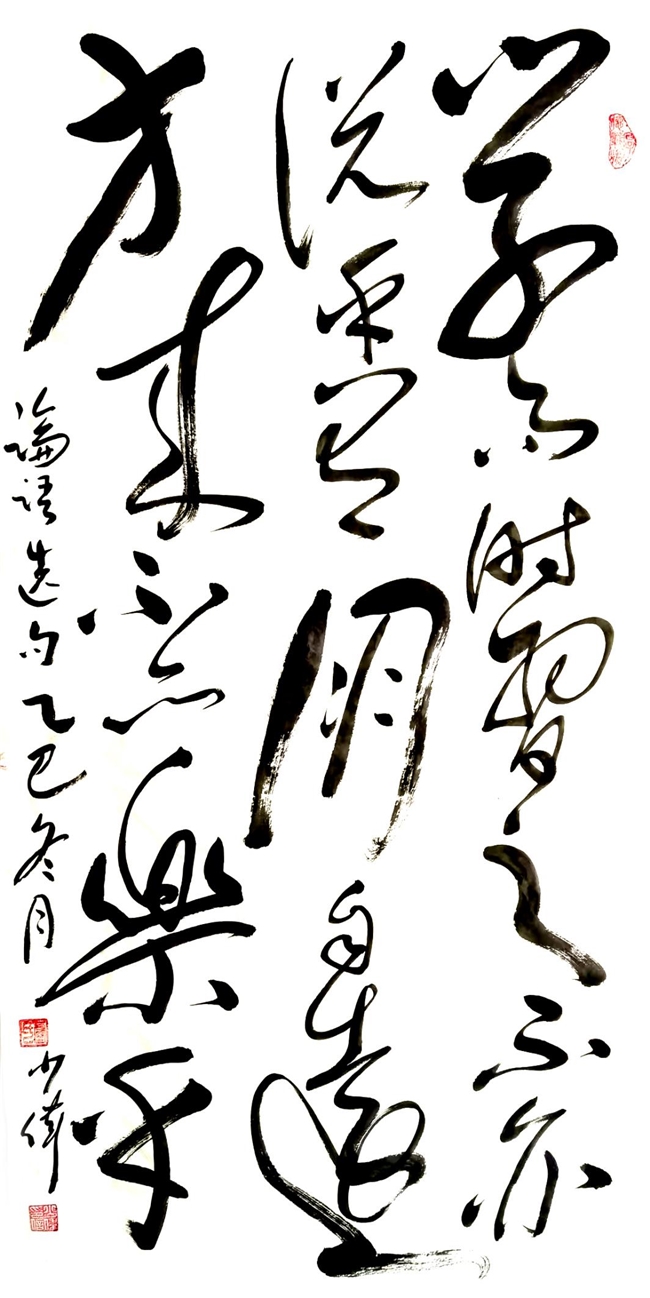 學而時習之不亦
说乎有朋自遠
方来不亦樂乎
論語选句乙巳冬月
少偉